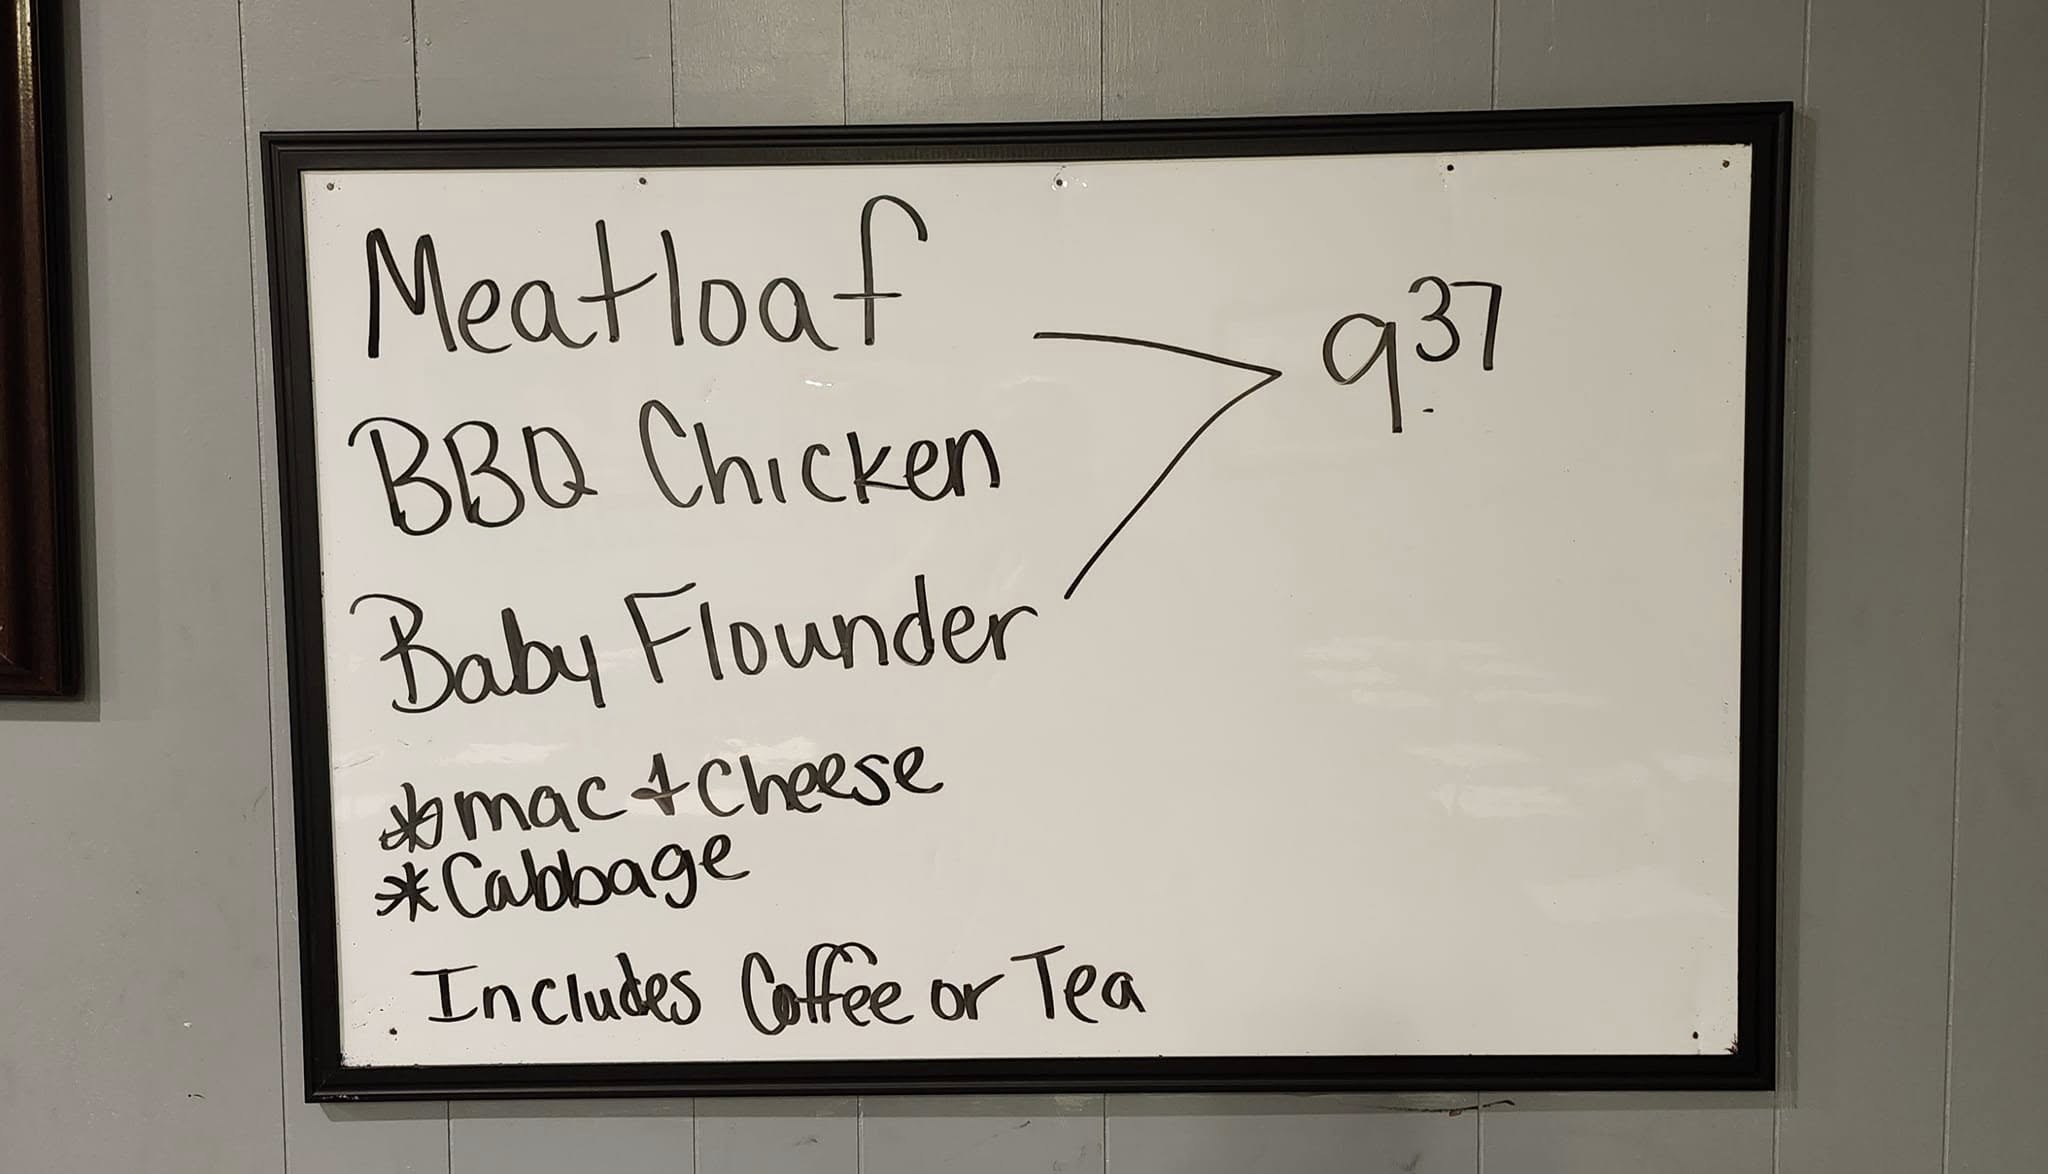 Meatloaf
9.37
BBQ Chicken
Baby Flounder
*mac & Cheese
*Cabbage
Includes Coffee or Tea